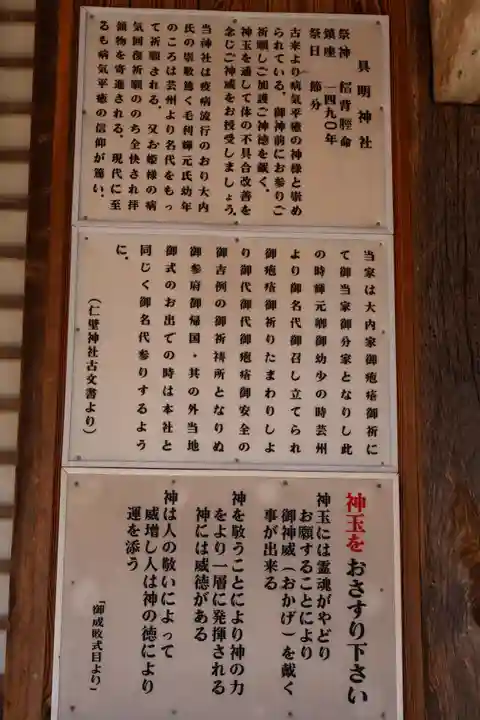 具明神社
祭神　稲背脛命
鎮座　一四九〇年
祭日　節分
古来より病気平癒の神様と崇め
られている。御神前にお参りご
祈願しご加護ご神徳を戴く。
神玉を通して体の不具合改善を
念じご神威をお授受しましょう。
当神社は疫病流行のおり大内
氏の崇敬篤く毛利輝元氏幼年
のころは芸州より名代をもっ
て祈願される。又お姫様の病
気回復祈願ののち全快され拝
領物を寄進される。現代に至
るも病気平癒の信仰が篤い。
当家は大内家御疱瘡御祈に
て御当家御分家となりし此
の時輝元卿御幼少の時芸州
より御名代御召し立てられ
御疱瘡御祈りたまわりしよ
り御代御代御疱瘡御安全の
御吉例の御祈祷所となりぬ
御参府御帰国・其の外当地
御式のお出での時は本社と
同じく御名代参りするよう
に。
（仁壁神社古文書より）
神玉をおさすり下さい
神玉には霊魂がやどり
お願することにより
御神威（おかげ）を戴く
事が出来る
神を敬うことにより神の力
をより一層に発揮される
神には威徳がある
神は人の敬いによって
威増し人は神の徳により
運を添う
「御成敗式目より」